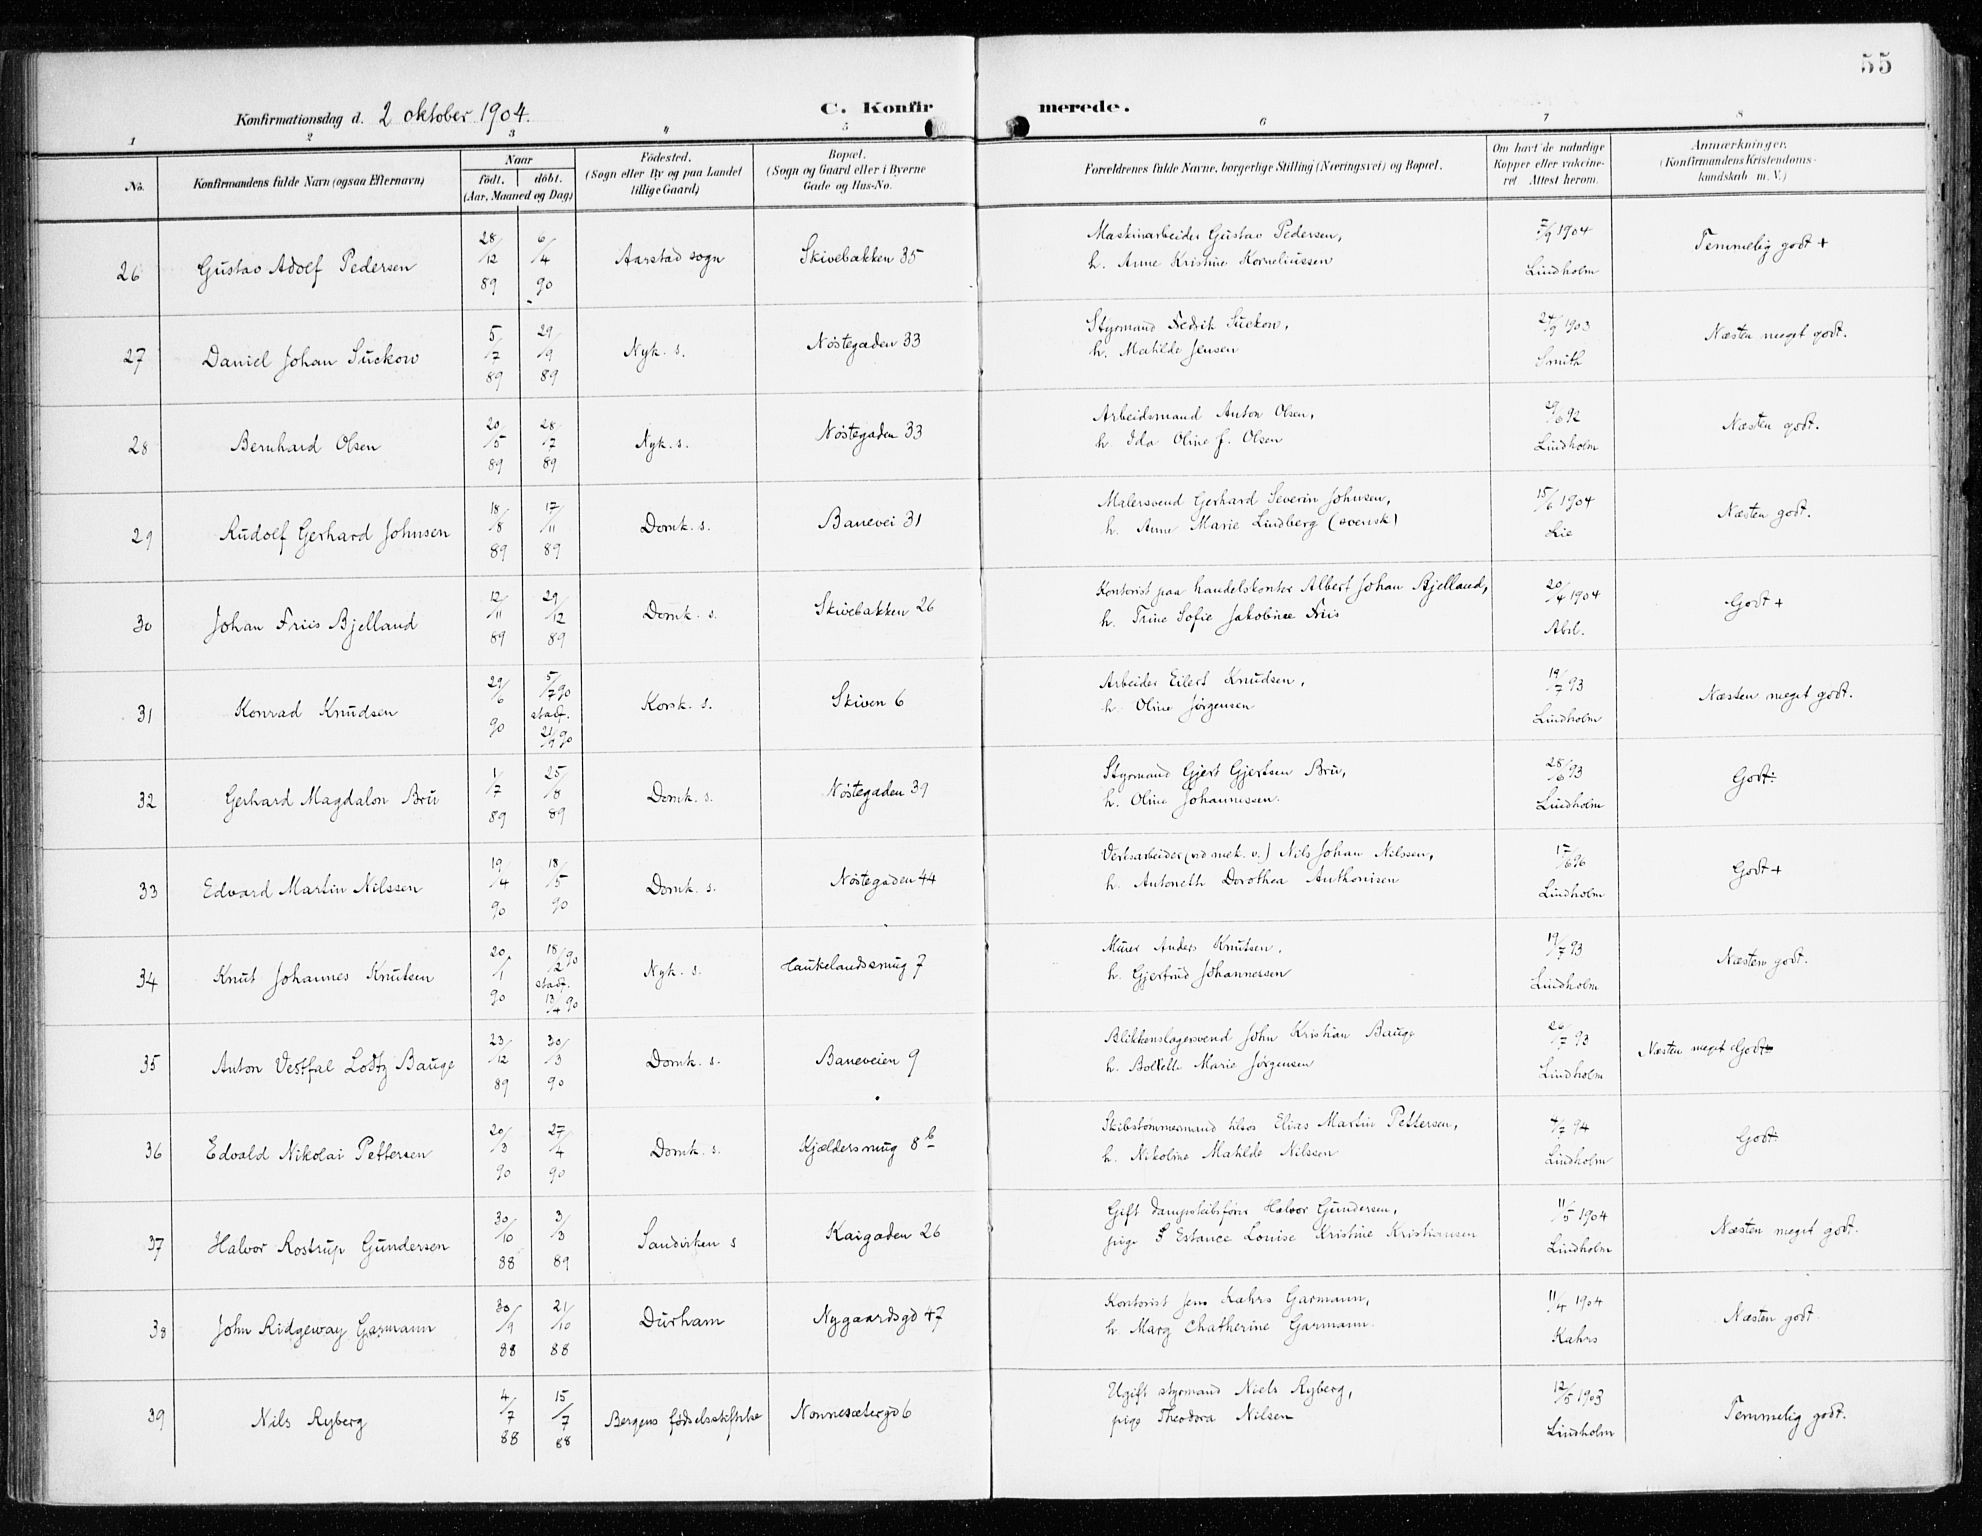 55
Konfirmationsdag d. 2 oktober 1904.
C. Konfirmerede.
1 2 3 4 5 6 7 8
No.
Konfirmandens fulde Navn (ogsaa Efternavn)
Naar
født. døbt.
(Aar, Maaned og Dag)
Fødested.
(Sogn eller By og paa Landet
tillige Gaard)
Bopæl.
(Sogn og Gaard eller i Byerne
Gade og Hus-No.
Forældrenes fulde Navne, borgerlige Stilling (Næringsvei) og Bopæl.
Om havt de naturlige
Kopper eller vakcine-
ret Attest herom.
Anmærkninger.
(Konfirmandens Kristendoms-
kundskab m. V.)
26 Gustav Adolf Pedersen 28/12 89 6/4 90 Aarstad sogn Skivebakken 35
Maskinarbeider Gustav Pedersen,
h. Anne Kristine Korneliussen
7/9 1904 Lindholm Temmelig godt +
27 Daniel Johan Suckow 5/7 89 29/9 89 Nyk. s. Nøstegaden 33
Styrmand Fedrik Suckow,
h. Mathilde Jensen
24/9 1903 Smith Næsten meget godt.
28 Bernhard Olsen 20/5 89 28/7 89 Nyk. s. Nøstegaden 33
Arbeidsmand Anton Olsen,
h. Ida Oline f. Olsen
29/6 92 Lindholm Næsten godt.
29 Rudolf Gerhard Johnsen 18/8 89 17/11 89 Domk. s. Banevei 31
Malersvend Gerhard Severin Johnsen,
h. Anne Marie Lindberg (svensk)
15/6 1904 Lie Næsten godt.
30 Johan Friis Bjelland 12/11 89 29/12 89 Domk. s. Skivebakken 26
Kontorist paa handelskontor Albert Johan Bjelland,
h. Trine Sofie Jakobine Friis
20/4 1904 Abel. Godt +
31 Konrad Knudsen 29/6 90 5/7 90 stadf. 21/9 90 Korsk. s. Skiven 6
Arbeider Eilert Knudsen,
h. Oline Jørgensen
19/7 93 Lindholm Næsten meget godt.
32 Gerhard Magdalon Bru 1/7 89 25/8 89 Domk. s. Nøstegaden 39
Styrmand Gjert Gjertsen Bru,
h. Oline Johannessen.
28/6 93 Lindholm Godt
33 Edvard Martin Nilssen 19/4 90 18/5 90 Domk. s. Nøstegaden 44
Verksarbeider (ved mek. v.) Nils Johan Nilssen,
h. Antoneth Dorothea Anthonisen
17/6 96 Lindholm Godt +
34 Knut Johannes Knutsen 20/1 90 18/2 90 stadf. 13/4 90 Nyk. s. Haukelandssmug 7
Murer Anders Knutsen,
h. Gjertrud Johannessen
19/7 93 Lindholm Næsten godt.
35 Anton Vestfal Lodtz Bauge 23/12 89 30/3 90 Domk. s. Baneveien 9
Blikkenslagersvend John Kristian Bauge
h. Bollette Marie Jørgensen
20/7 93 Lindholm Næsten meget Godt
36 Edvald Nikolai Pettersen 20/3 90 27/4 90 Domk. s. Kjældersmug 8 b
Skibstømmermand tilsos Elias Martin Pettersen,
h. Nikoline Mathilde Nilssen
4/7 94 Lindholm Godt
37 Halvor Rostrup Gundersen 30/10 88 3/3 89 Sandviken s Kaigaden 26
Gift dampskibsfører Halvor Gundersen,
pige Estance Louise Kristine Kristiansen
11/5 1904 Lindholm Næsten meget godt.
38 John Ridgeway Garmann 30/9 88 21/10 88 Durham Nygaardsgd 47
Kontorist Jens Kahrs Garmann,
h. Marg Chatherine Garmann.
11/4 1904 Kahrs Næsten godt
39 Nils Ryberg 4/7 88 15/7 88 Bergens fødselsstiftelse Nonnesætergd 6
Ugift styrmand Niels Ryberg,
pige Theodora Nilsen
12/5 1903 Lindholm Temmelig godt.